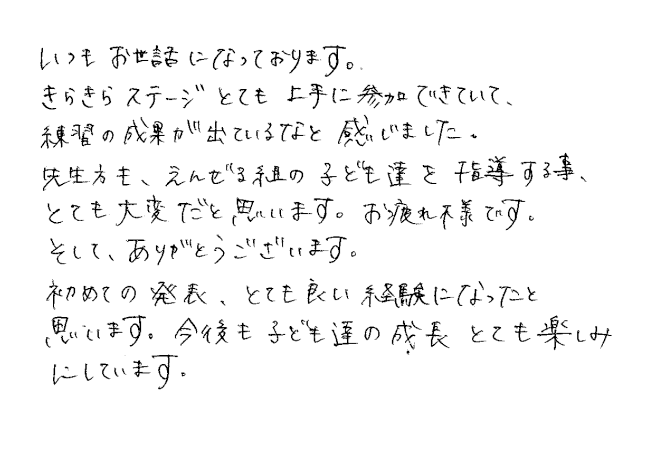 いつもお世話になっております。
きらきらステージとても上手に参加できていて、
練習の成果が出ているなと感じました。
先生方も、えんぜる組の子ども達を指導する事、
とても大変だと思います。お疲れ様です。
そして、ありがとうございます。
初めての発表、とても良い経験になったと
思います。今後も子ども達の成長とても楽しみ
にしています。